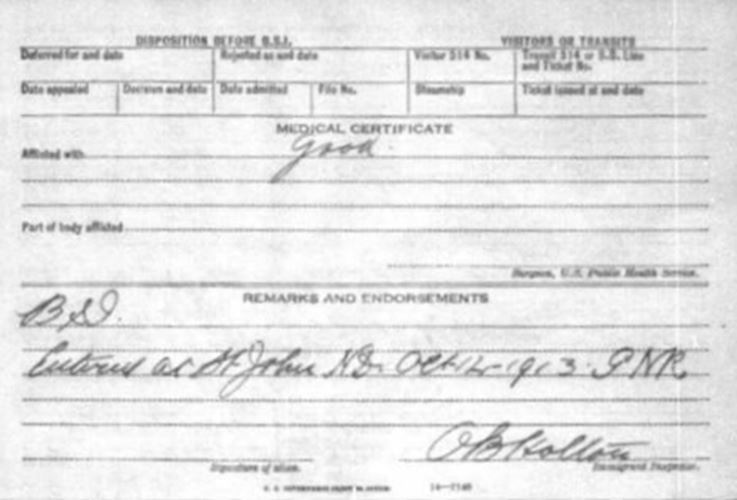 DISPOSITION BEFORE B.S.I. VISITORS OR TRANSITS
Deferred for and date Rejected as and date Visitor 514 No. Transit 514 or S.S. Line and Ticket No.
Date appealed Decision and date Date admitted File No. Steamship Ticket issued at and date
MEDICAL CERTIFICATE
Afflicted with Good.
Part of body afflicted
Surgeon, U.S. Public Health Service.
REMARKS AND ENDORSEMENTS
Entered at St John ND. Oct 12-1913.
Signature of alien. Immigrant Inspector.